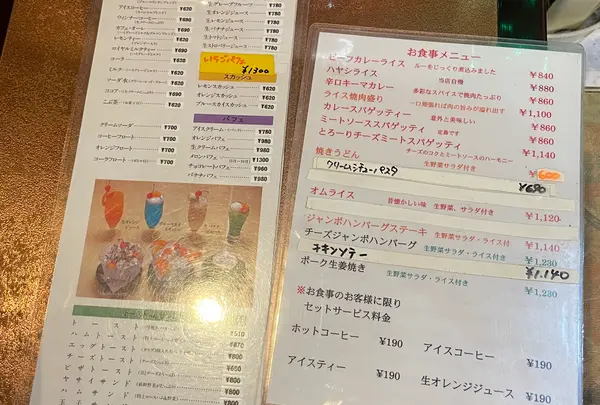 アイスコーヒー ¥620
ウィンナーコーヒー ¥690
カフェ・オーレ ¥690
レモンティー ¥620
ロイヤルミルクティー ¥690
コーラ
ミルク
ソーダ水
ココア
こぶ茶 ¥700
クリームソーダ ¥700
コーヒーフロート ¥700
オレンジフロート ¥700
コーラフロート ¥700
生グレープフルーツ ¥780
生オレンジジュース ¥780
生レモンジュース ¥780
生バナナジュース ¥780
生トマトジュース ¥780
生ストロベリージュース ¥780
いちごパフェ ¥1300
スカッシュ
レモンスカッシュ ¥680
オレンジスカッシュ ¥680
ブルースカイスカッシュ ¥680
パフェ
アイスクリーム ¥780
オレンジパフェ ¥980
生クリームパフェ ¥980
メロンパフェ ¥1,300
チョコレートパフェ ¥980
バナナパフェ ¥980
トースト
ハムトースト
エッグトースト ¥800
チーズトースト ¥800
ピザトースト ¥650
ヤサイサンド ¥800
ハムサンド ¥800
玉子サンド
お食事メニュー
ビーフカレーライス ルーをじっくり煮込みました ¥840
ハヤシライス 当店自慢 ¥880
辛口キーマカレー 多彩なスパイスで焼肉たっぷり ¥860
ライス焼肉盛り 一口頬張れば肉の旨みが溢れ出す ¥1,100
カレースパゲッティ 意外と美味しい ¥860
ミートソーススパゲッティ 定番です ¥860
とろーりチーズミートスパゲッティ チーズのコクとミートソースのハーモニー ¥1,140
焼きうどん 生野菜サラダ付き ¥600
クリームシチューパスタ ¥690
オムライス 昔懐かしい味 生野菜、サラダ付き ¥1,120
ジャンボハンバーグステーキ 生野菜サラダ・ライス付 ¥1,140
チーズジャンボハンバーグ 生野菜サラダ・ライス付 ¥1,230
チキンソテー ¥1,140
ポーク生姜焼き 生野菜サラダ・ライス付 ¥1,230
※お食事のお客様に限り
セットサービス料金
ホットコーヒー ¥190 アイスコーヒー ¥190
アイスティー ¥190 生オレンジジュース ¥190